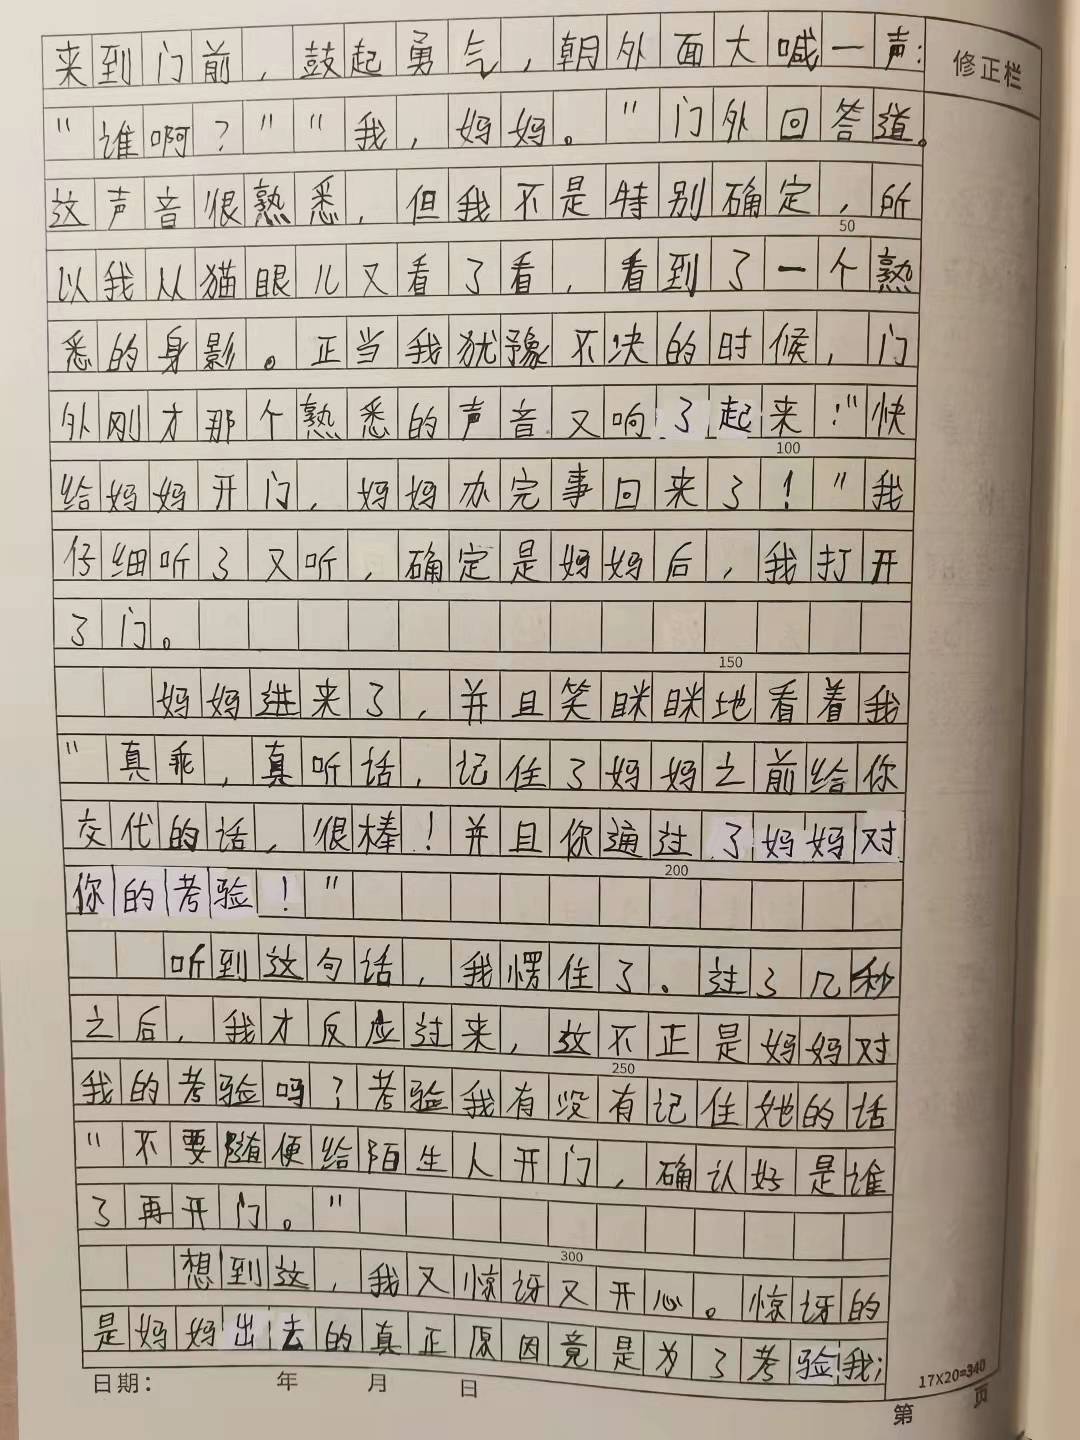 来到门前，鼓起勇气，朝外面大喊一声：
修正栏
“谁啊？”“我，妈妈。”门外回答道。
这声音很熟悉，但我不是特别确定，所
50
以我从猫眼儿又看了看，看到了一个熟
悉的身影。正当我犹豫不决的时候，门
外刚才那个熟悉的声音又响了起来：“快
100
给妈妈开门，妈妈办完事回来了！”我
仔细听了又听，确定是妈妈后，我打开
了门。
150
妈妈进来了，并且笑眯眯地看着我
“真乖，真听话，记住了妈妈之前给你
交代的话，很棒！并且你通过了妈妈对
200
你的考验！”
听到这句话，我愣住了。过了几秒
之后，我才反应过来，这不正是妈妈对
250
我的考验吗？考验我有没有记住她的话
“不要随便给陌生人开门，确认好是谁
了再开门。”
300
想到这，我又惊讶又开心。惊讶的
是妈妈出去的真正原因竟是为了考验我；
17X20=340
日期： 年 月 日
第 页